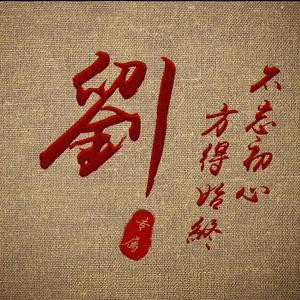 劉
不忘初心
方得始終
专属